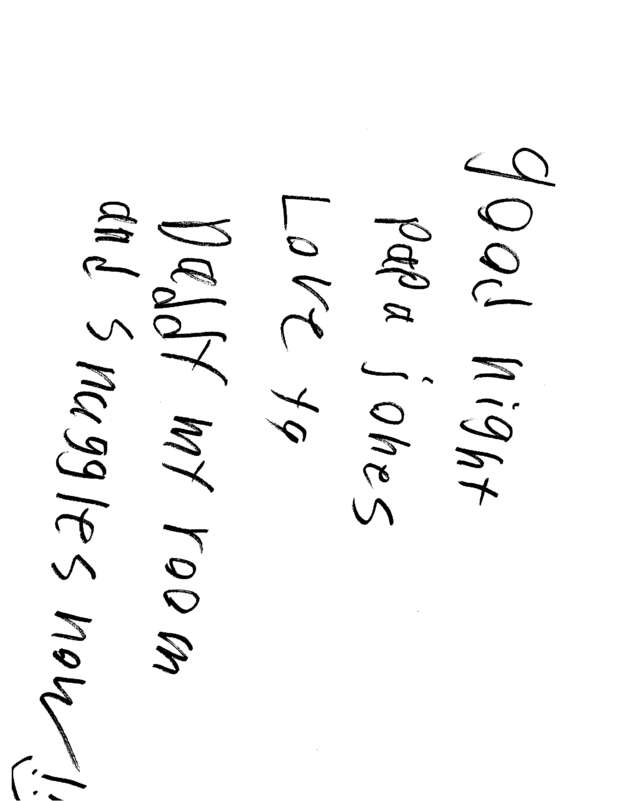 good night
papa jones
Love ya
Daddy my room
and snuggles now!!